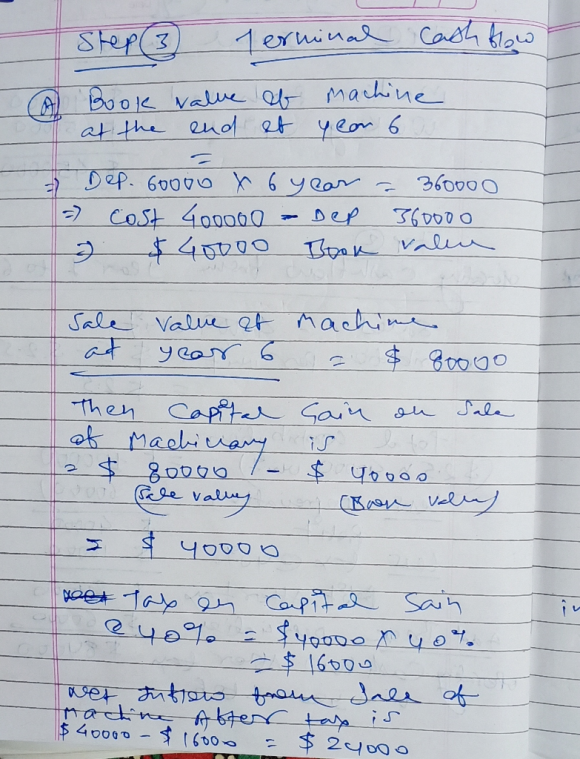 Step ③ Terminal Cash flow
Ⓐ Book value of Machine
at the end of year 6
=
⇒ Dep. 60000 × 6 year = 360000
⇒ Cost 400000 - Dep 360000
⇒ $ 40000 Book value
Sale value of Machine
at year 6 = $ 80000
Then Capital Gain on Sale
of Machinary is
= $ 80000 - $ 40000
(Sale value) (Book value)
= $ 40000
Tax on Capital Gain
@ 40% = $40000 × 40%
= $ 16000
Net Inflow from Sale of
Machine After tax is
$ 40000 - $ 16000 = $ 24000